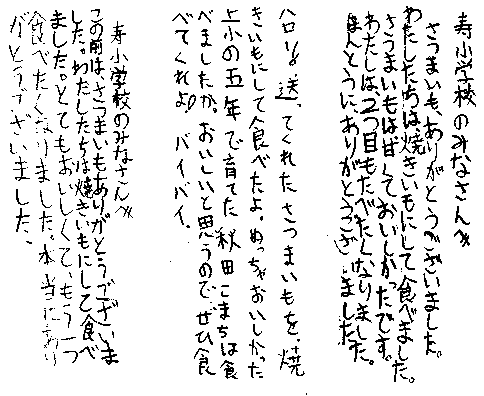 寿小学校のみなさんへ
さつまいも、ありがとうございました。
わたしたちは焼きいもにして食べました。
さつまいもは甘くておいしかったです。
わたしは2つ目もたべたくなりました。
ほんとうに、ありがとうございました。
ハロー。送ってくれたさつまいもを、焼
きいもにして食べたよ。めっちゃおいしかった
上小の五年で育てた秋田こまちは食
べましたか。おいしいと思うのでぜひ食
べてくれよ。バイバイ。
寿小学校のみなさんへ
この前は、さつまいもありがとうございま
した。わたしたちは焼きいもにして食べ
ました。とてもおいしくて、もう一つ
食べたくなりました。本当にあり
がとうございました。